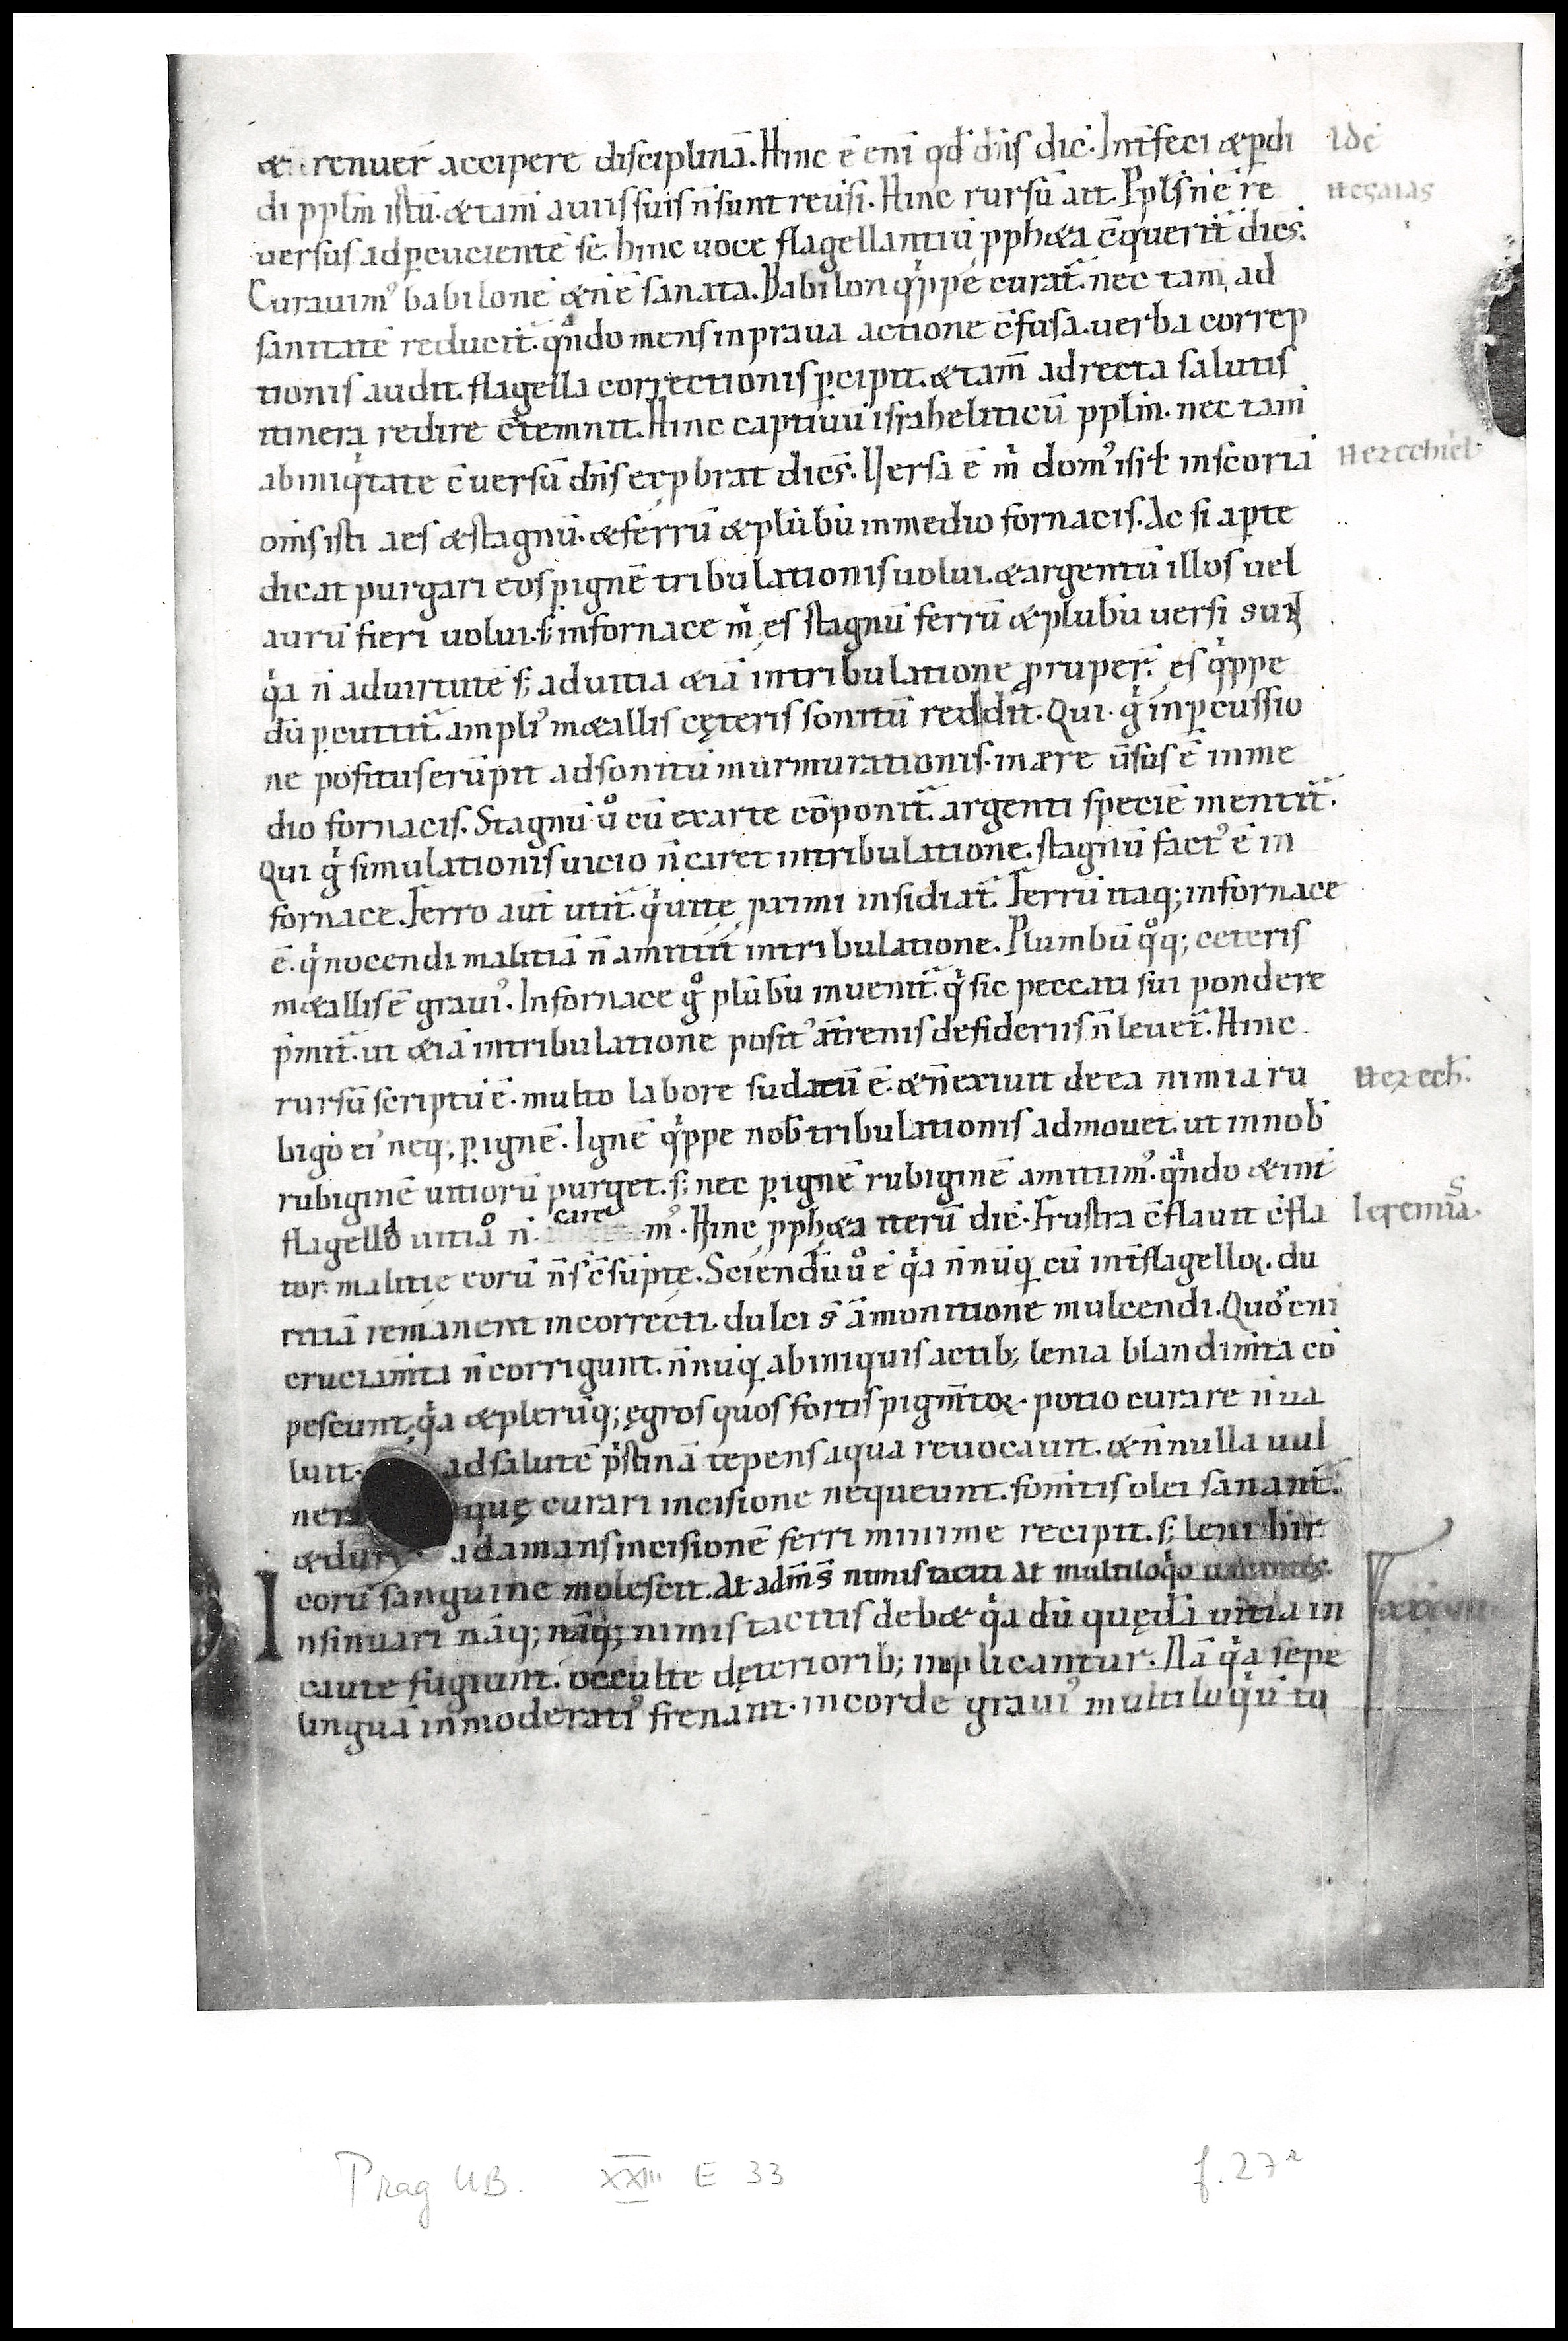 & renuer̄ accipere disciplinā. Hinc ē enī qd̄ dn̄s dic̄. Int̄feci & ꝑdi
Idē
di pplm̄ istū. & tam̄ a uiis suis n̄ sunt reũsi. Hinc rursū ait. Ppls̄ ñ ē re
versus ad ꝑcucientē se. hinc uoce flagellantiū pph&a c̄querit᷑ dicēs.
Curauimꝰ babilonē & ñ ē sanata. Babilon qͥppe curat᷑. nec tam̄ ad
sanitatē reducit᷑. qn̄do mens in praua actione c̄fusa. uerba correp
tionis audit. flagella correctionis ꝑcipit. & tam̄ ad recta salutis
itinera redire c̄temnit. Hinc captiuū israheliticū pplm̄. nec tam̄
ab iniqͥtate c̄uersū dn̄s exp̱brat dicēs. Versa ē m̄ domꝰ isrl̄ in scoriā
Hezechiel
om̄s isti aes & stagnū. & ferrū & plūbū in medio fornacis. Ac si aꝑte
dicat purgari eos ꝑ ignē tribulationis uolui. & argentū illos uel
aurū fieri uolui. s; in fornace m̄ es stagnū ferrū & plūbū uersi sunt
qͣa ñ ad uirtutē s; ad uitia &iā in tribulatione ꝓruper̄. ęs qͥppe
dū ꝑcutit᷑. ampliꝰ m&allis cęteris sonitū reddit. Qui. gͦ in ꝑcussio
ne positus erūpit ad sonitū murmurationis. in ære ūsus ē in me
dio fornacis. Stagnū uͦ cū ex arte cōponit᷑. argenti speciē mentit᷑.
Qui gͦ simulationis uicio ñ caret in tribulatione. stagnū factꝰ ē in
fornace. Ferro aut̄ utit᷑. qͥ uitę p̱ximi insidiat᷑. Ferrū itaq; in fornace
ē. qͥ nocendi malitiā ñ amittit in tribulatione. Plumbū qͦq; ceteris
m&allis ē grauiꝰ. In fornace gͦ plūbū inuenit᷑. qͥ sic peccati sui pondere
p̄mit᷑. ut &iā in tribulatione positꝰ a t̄renis desideriis ñ leuet᷑. Hinc
rursū scriptū ē. multo labore sudatū ē. & ñ exiuit de ea nimia ru
Hezech̄.
bigo eiꝰ neq; ꝑ ignē. Ignē qͥppe nob̄ tribulationis admouet. ut in nob̄
rubiginē uitiorū purget. s; nec ꝑ ignē rubiginē amittimꝰ. qn̄do & int̄
flagella uitio ñ care mꝰ. Hinc pph&a iterū dic̄. Frustra c̄flauit c̄fla
Ieremias.
tor. malitie eorū ñ s̄ c̄sūptę. Sciendū uͦ ē qͣa ñ nūq̄ cū int̄ flagelloꝝ. du
ritiā remanent incorrecti. dulci s̄ āmonitione mulcendi. Quos enī
cruciam̄ta ñ corrigunt. ñ nūq̄ ab iniquis actib; lenia blandim̄ta cō
pescunt. qͣa & plerūq; ęgros quos fortis pigm̄toꝝ. potio curare ñ ua
luit. ad salutē p̄stinā tepens aqua reuocauit. & ñ nulla uul
nera quę curari incisione nequeunt. fom̄tis olei sanant᷑.
& durꝰ adamans incisionē ferri minime recipit. s; leni hir
corū sanguine molescit. At adm̄ s̄ nimis taciti at multiloqͥo uacantes.
Insinuari nāq; nāq; nimis tacitis deb& qͣa dū quędā uitia in
caute fugiunt. occulte dęteriorib; implicantur. Nā qͣa sepe
linguā inmoderatiꝰ frenant. in corde grauiꝰ multiloqͥū to
Prag UB. XXIII E 33
f. 27r